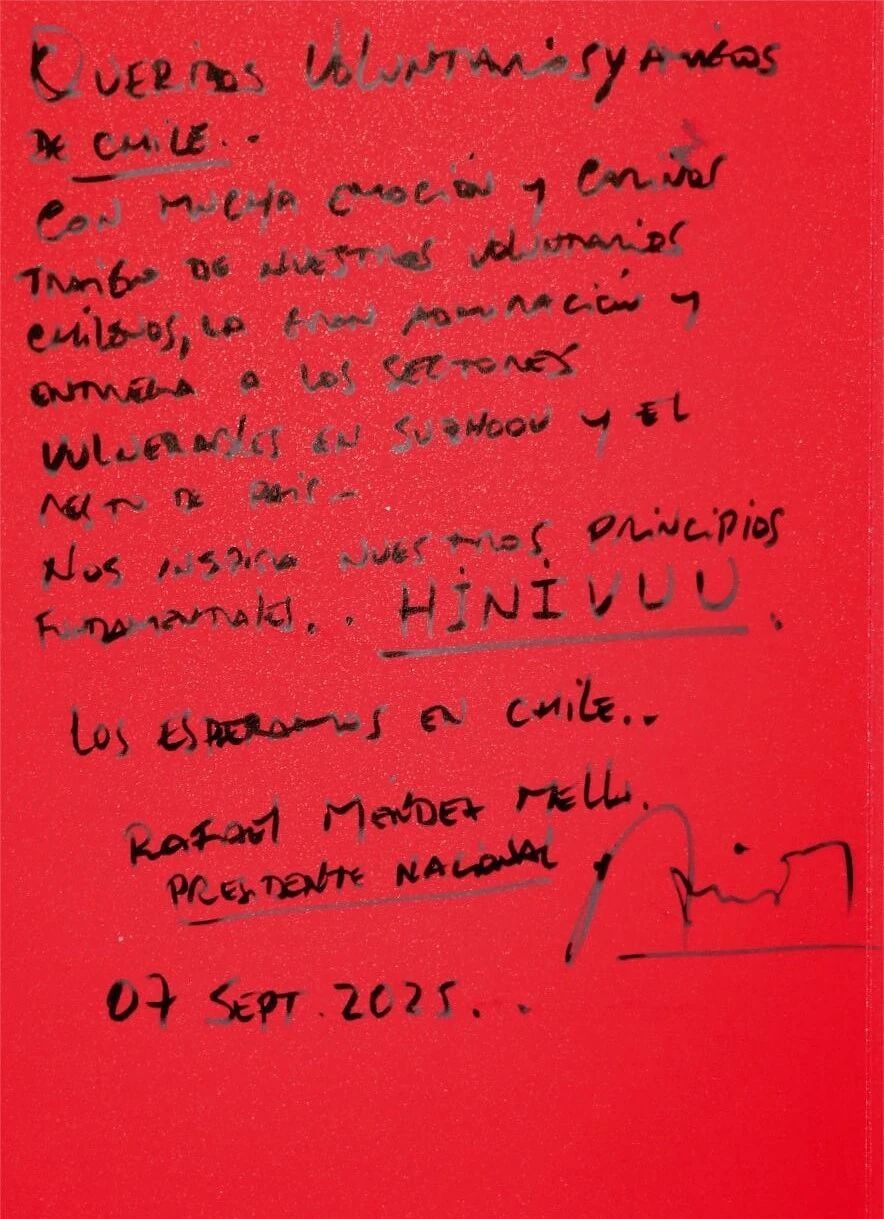 QUERIDOS VOLUNTARIOS Y AMIGOS
DE CHILE..
CON MUCHA EMOCIÓN y CARIÑOS
TRAIGO DE NUESTROS VOLUNTARIOS
CHILENOS, LA GRAN ADMIRACIÓN y
ENTREGA A LOS SECTORES
VULNERABLES EN SUZHOOU y EL
RESTO DE PAIS -
NOS INSPIRA NUESTROS PRINCIPIOS
FUNDAMENTALES.. HINIVUU.
LOS ESPERAMOS EN CHILE..
RAFAEL MÉNDEZ MELLA.
PRESIDENTE NACIONAL
07 SEPT. 2025...